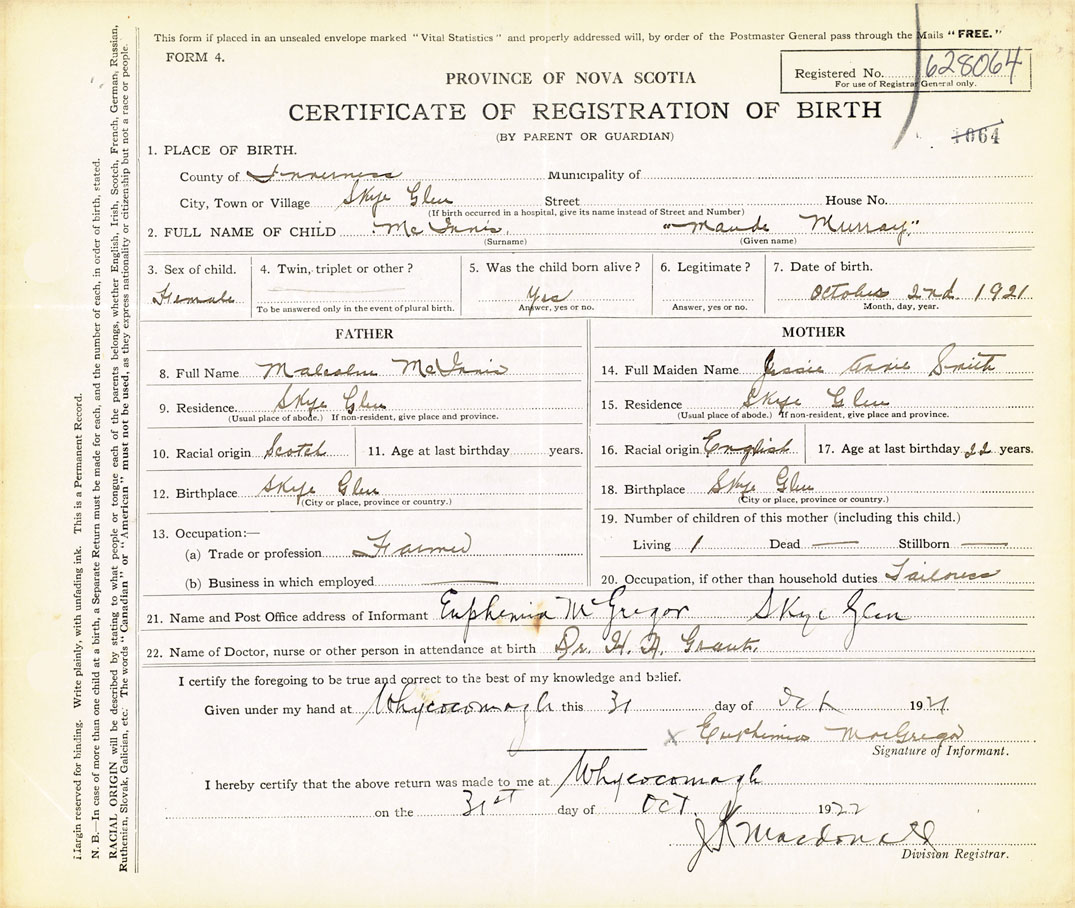 This form if placed in an unsealed envelope marked "Vital Statistics" and properly addressed will, by order of the Postmaster General pass through the Mails "FREE."
FORM 4.
Registered No. 628064
For use of Registrar General only.
PROVINCE OF NOVA SCOTIA
CERTIFICATE OF REGISTRATION OF BIRTH
(BY PARENT OR GUARDIAN)
1064
1. PLACE OF BIRTH.
County of Inverness Municipality of
City, Town or Village Skye Glen Street House No.
(If birth occurred in a hospital, give its name instead of Street and Number)
2. FULL NAME OF CHILD McInnis, "Maude Murray"
(Surname) (Given name)
3. Sex of child. 4. Twin, triplet or other? 5. Was the child born alive? 6. Legitimate? 7. Date of birth.
Female Yes October 2nd 1921
To be answered only in the event of plural birth. Answer, yes or no. Answer, yes or no. Month, day, year.
FATHER
8. Full Name Malcolm McInnis
9. Residence. Skye Glen
(Usual place of abode.) If non-resident, give place and province.
10. Racial origin Scotch 11. Age at last birthday years.
12. Birthplace Skye Glen
(City or place, province or country.)
13. Occupation:—
(a) Trade or profession Farmer
(b) Business in which employed
MOTHER
14. Full Maiden Name Jessie Annie Smith
15. Residence Skye Glen
(Usual place of abode.) If non-resident, give place and province.
16. Racial origin English 17. Age at last birthday 22 years.
18. Birthplace Skye Glen
(City or place, province or country.)
19. Number of children of this mother (including this child.)
Living 1 Dead — Stillborn —
20. Occupation, if other than household duties Tailoress
21. Name and Post Office address of Informant Euphemia McGregor Skye Glen
22. Name of Doctor, nurse or other person in attendance at birth Dr. H. N. Grant.
I certify the foregoing to be true and correct to the best of my knowledge and belief.
Given under my hand at Whycocomagh this 31 day of Oct 1921
x Euphemia MacGregor
Signature of Informant.
I hereby certify that the above return was made to me at Whycocomagh
on the 31st day of Oct. 1922
J K Macdonald
Division Registrar.
Margin reserved for binding. Write plainly, with unfading ink. This is a Permanent Record.
N. B.—In case of more than one child at a birth, a Separate Return must be made for each, and the number of each, in order of birth, stated.
RACIAL ORIGIN will be described by stating to what people or tongue each of the parents belongs, whether English, Irish, Scotch, French, German, Russian,
Ruthenien, Slovak, Galician, etc. The words "Canadian" or "American" must not be used, as they express nationality or citizenship but not a race or people.